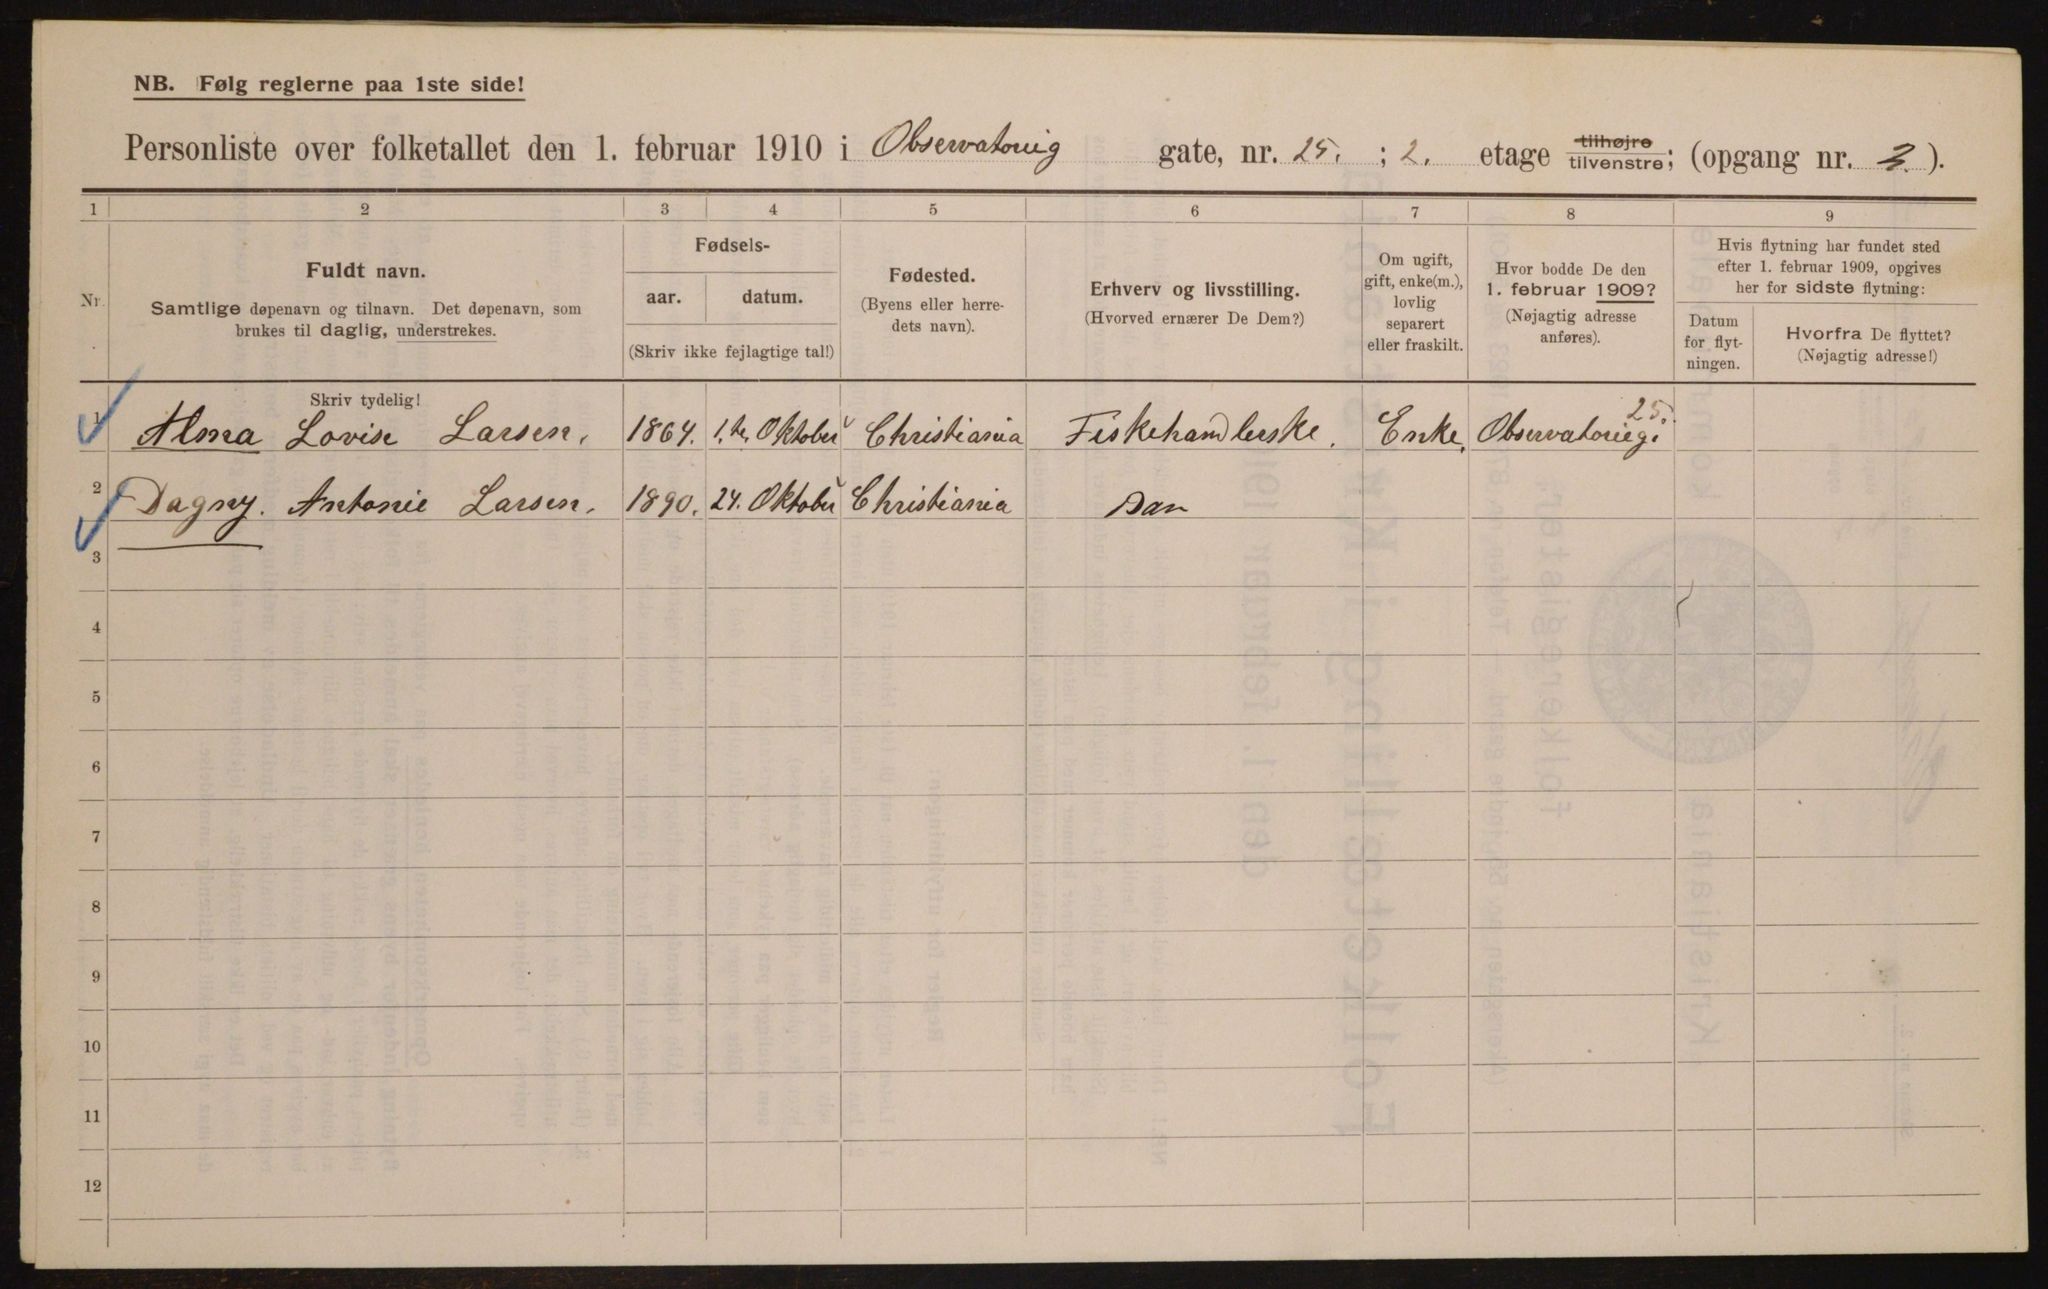 NB. Følg reglerne paa 1ste side!
Personliste over folketallet den 1. februar 1910 i Observatorieg gate, nr. 25. ; 2. etage tilhøjre tilvenstre; (opgang nr. 2.).
1 2 3 4 5 6 7 8 9
Nr.
Fuldt navn.
Samtlige døpenavn og tilnavn. Det døpenavn, som
brukes til daglig, understrekes.
Fødsels-
aar. datum.
(Skriv ikke fejlagtige tal!)
Fødested.
(Byens eller herre-
dets navn).
Erhverv og livsstilling.
(Hvorved ernærer De Dem?)
Om ugift,
gift, enke(m.),
lovlig
separert
eller fraskilt.
Hvor bodde De den
1. februar 1909?
(Nøjagtig adresse
anføres).
Hvis flytning har fundet sted
efter 1. februar 1909, opgives
her for sidste flytning:
Datum
for flyt-
ningen.
Hvorfra De flyttet?
(Nøjagtig adresse!)
Skriv tydelig!
1 Alma Lovise Larsen. 1864. 1.te. Oktober Christiania Fiskehandlerske. Enke. Observatorieg. 25.
2 Dagny. Antonie Larsen. 1890. 24. Oktober Christiania
3
4
5
6
7
8
9
10
11
12